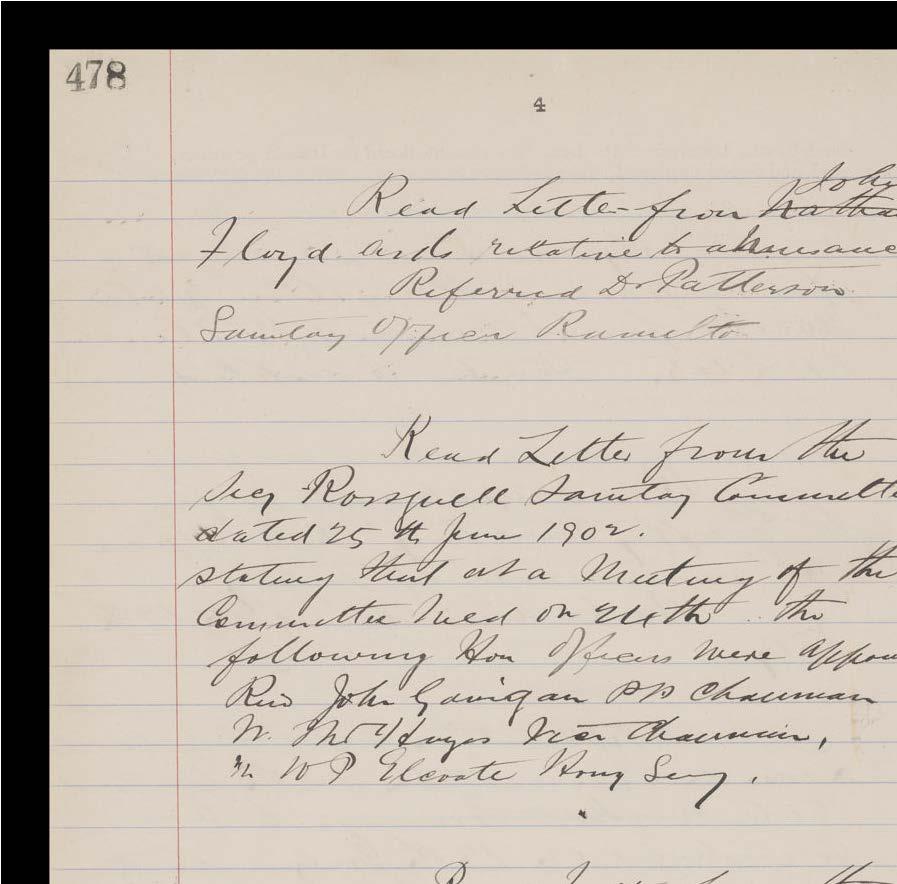 478
4
John
Read Letter from Natha
Floyd ards relative to a nuisance
Referred Dr Patterson
Sanitary Officer Ramelto
Read Letter from the
Secy Rossguell Sanitary Committe
dated 25th June 1902.
stating that at a Meeting of the
Committee held on the
following Hon Officers were appoin
Rev John Gavigan PP Chairman
W. Vice Chairman,
W P Hony Secy.